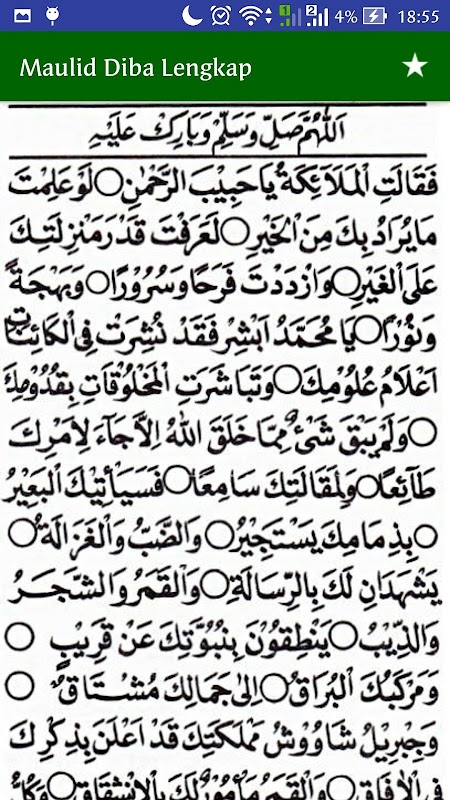 18:55 4% 2 1
Maulid Diba Lengkap
اَللّٰهُمَّ صَلِّ وَسَلِّمْ وَبَارِكْ عَلَيْهِ
فَقَالَتِ الْمَلَآئِكَةُ يَا حَبِيْبَ الرَّحْمٰنِ ○ لَوْ عَلِمْتَ
مَا يُرَادُ بِكَ مِنَ الْخَيْرِ ○ لَعَرَفْتَ قَدْرَ مَنْزِلَتِكَ
عَلَى الْغَيْرِ ○ وَازْدَدْتَ فَرَحًا وَسُرُوْرًا ○ وَبَهْجَةً
وَنُوْرًا ○ يَا مُحَمَّدُ اَبْشِرْ فَقَدْ نُشِرَتْ فِى الْكَائِنَاتِ
اَعْلَامُ عُلُوْمِكَ ○ وَتَبَاشَرَتِ الْمَخْلُوْقَاتِ بِقُدُوْمِكَ
○ وَلَمْ يَبْقَ شَىْءٌ مِمَّا خَلَقَ اللهُ اِلَّا جَآءَ لِاَمْرِكَ
طَآئِعًا ○ وَلِمَقَالَتِكَ سَامِعًا ○ فَسَيَأْتِيْكَ الْبَعِيْرُ
○ بِذِمَامِكَ يَسْتَجِيْرُ ○ وَالضَّبُّ وَالْغَزَالَةُ ○
يَشْهَدَانِ لَكَ بِالرِّسَالَةِ ○ وَالْقَمَرُ وَالشَّجَرُ
وَالذِّيْبُ ○ يَنْطِقُوْنَ بِنُبُوَّتِكَ عَنْ قَرِيْبٍ ○
وَمَرْكَبُكَ الْبُرَاقُ ○ اِلَى جَمَالِكَ مُشْتَاقٌ ○
وَجِبْرِيْلُ شَاوُوْشُ مَمْلَكَتِكَ قَدْ اَعْلَنَ بِذِكْرِكَ
فِى الْاٰفَاقِ ○ وَالْقَمَرُ مَأْمُوْرٌ لَكَ بِالْاِنْشِقَاقِ ○ وَكُلُّ